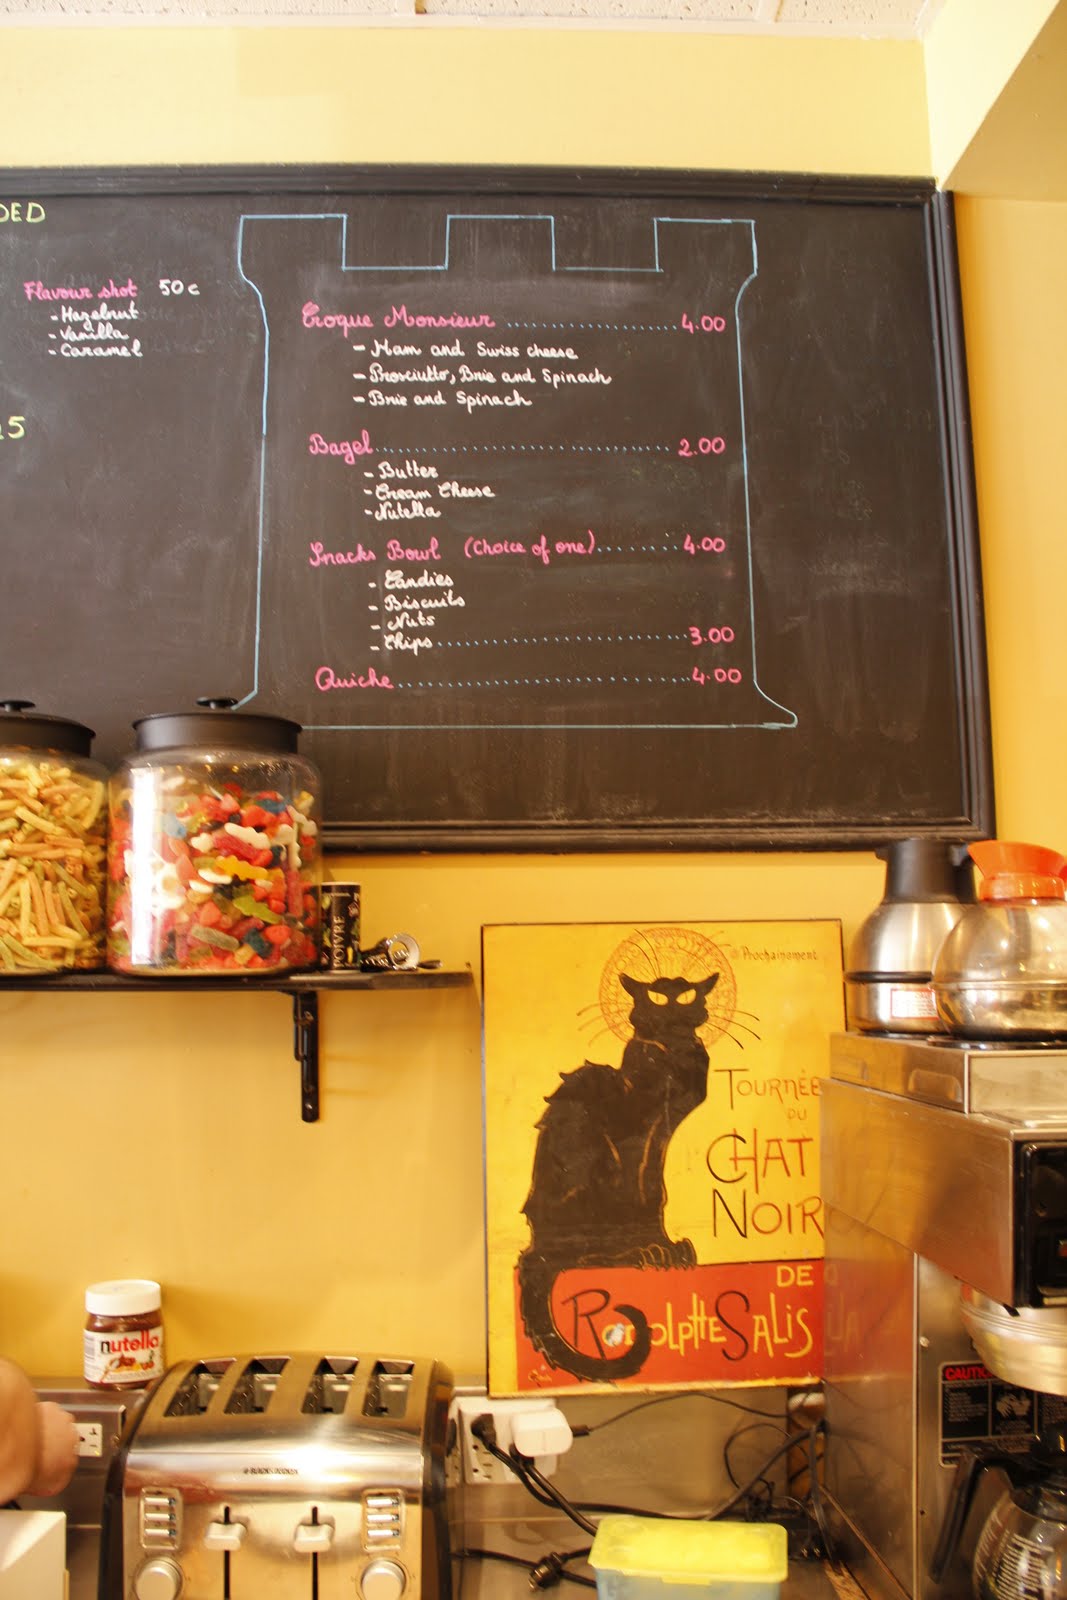 DED
Flavour shot 50c
- Hazelnut
- Vanilla
- Caramel
25
Croque Monsieur ........................ 4.00
- Ham and Swiss cheese
- Prosciutto, Brie and Spinach
- Brie and Spinach
Bagel ........................................ 2.00
- Butter
- Cream Cheese
- Nutella
Snacks Bowl (Choice of one) .......... 4.00
- Candies
- Biscuits
- Nuts
- Chips .................................. 3.00
Quiche ...................................... 4.00
POIVRE
Prochainement
TOURNÉE
DU
CHAT
NOIR
DE
RODOLPHE SALIS
nutella
BLACK & DECKER
CAUTION